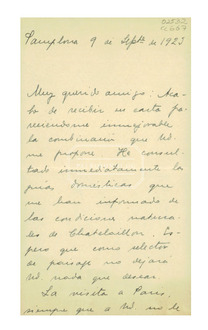 Pamplona 9 de Septe de 1923
Muy querido amigo: Aca-
bo de recibir su carta pa-
reciendome inmejorable
la combinación que Vd.
me propone. He consul-
tado inmediatamente los
guias domésticas que
me han informado de
las condiciones natura-
les de Chatelaillon. Es-
pero que como selector
de paisaje no dejará
Vd nada que desear.
La visita a Paris,
siempre que a Vd no le